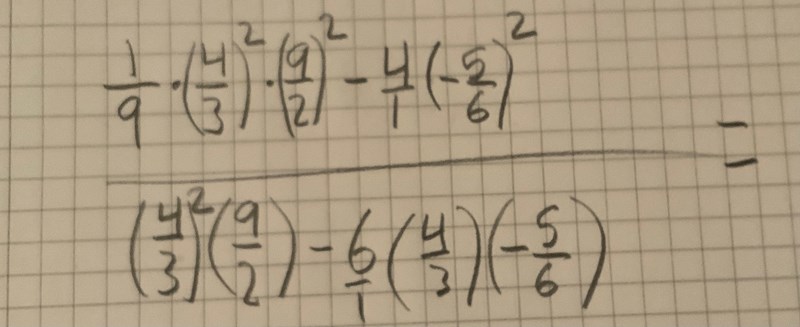 1/9 · (4/3)² · (9/2)² - 4/1 (-5/6)²
=
(4/3)² (9/2) - 6/1 (4/3) (-5/6)